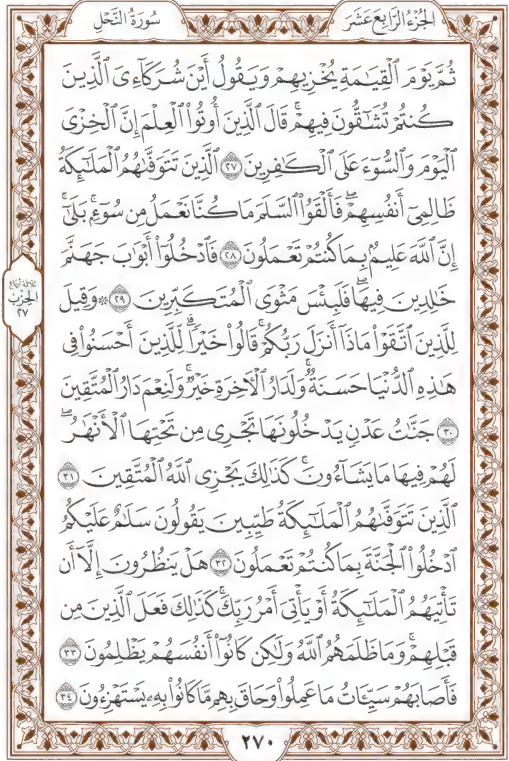 الجُزْءُ الرَّابِعَ عَشَرَ
سُورَةُ النَّحْلِ
ثُمَّ يَوْمَ ٱلْقِيَٰمَةِ يُخْزِيهِمْ وَيَقُولُ أَيْنَ شُرَكَآءِىَ ٱلَّذِينَ
كُنتُمْ تُشَٰٓقُّونَ فِيهِمْ ۚ قَالَ ٱلَّذِينَ أُوتُوا۟ ٱلْعِلْمَ إِنَّ ٱلْخِزْىَ
ٱلْيَوْمَ وَٱلسُّوٓءَ عَلَى ٱلْكَٰفِرِينَ ٢٧ ٱلَّذِينَ تَتَوَفَّىٰهُمُ ٱلْمَلَٰٓئِكَةُ
ظَالِمِىٓ أَنفُسِهِمْ ۖ فَأَلْقَوُا۟ ٱلسَّلَمَ مَا كُنَّا نَعْمَلُ مِن سُوٓءٍۭ ۚ بَلَىٰٓ ۚ
إِنَّ ٱللَّهَ عَلِيمٌۢ بِمَا كُنتُمْ تَعْمَلُونَ ٢٨ فَٱدْخُلُوٓا۟ أَبْوَٰبَ جَهَنَّمَ
خَٰلِدِينَ فِيهَا ۖ فَلَبِئْسَ مَثْوَى ٱلْمُتَكَبِّرِينَ ٢٩ ۞ وَقِيلَ
لِلَّذِينَ ٱتَّقَوْا۟ مَاذَآ أَنزَلَ رَبُّكُمْ ۚ قَالُوا۟ خَيْرًا ۗ لِّلَّذِينَ أَحْسَنُوا۟ فِى
هَٰذِهِ ٱلدُّنْيَا حَسَنَةٌ ۚ وَلَدَارُ ٱلْءَاخِرَةِ خَيْرٌ ۚ وَلَنِعْمَ دَارُ ٱلْمُتَّقِينَ
٣٠ جَنَّٰتُ عَدْنٍ يَدْخُلُونَهَا تَجْرِى مِن تَحْتِهَا ٱلْأَنْهَٰرُ ۖ
لَهُمْ فِيهَا مَا يَشَآءُونَ ۚ كَذَٰلِكَ يَجْزِى ٱللَّهُ ٱلْمُتَّقِينَ ٣١
ٱلَّذِينَ تَتَوَفَّىٰهُمُ ٱلْمَلَٰٓئِكَةُ طَيِّبِينَ ۙ يَقُولُونَ سَلَٰمٌ عَلَيْكُمُ
ٱدْخُلُوا۟ ٱلْجَنَّةَ بِمَا كُنتُمْ تَعْمَلُونَ ٣٢ هَلْ يَنظُرُونَ إِلَّآ أَن
تَأْتِيَهُمُ ٱلْمَلَٰٓئِكَةُ أَوْ يَأْتِىَ أَمْرُ رَبِّكَ ۚ كَذَٰلِكَ فَعَلَ ٱلَّذِينَ مِن
قَبْلِهِمْ ۚ وَمَا ظَلَمَهُمُ ٱللَّهُ وَلَٰكِن كَانُوٓا۟ أَنفُسَهُمْ يَظْلِمُونَ ٣٣
فَأَصَابَهُمْ سَيِّـَٔاتُ مَا عَمِلُوا۟ وَحَاقَ بِهِم مَّا كَانُوا۟ بِهِۦ يَسْتَهْزِءُونَ ٣٤
ثلاثة أرباع
الحِزْب
٢٧
٢٧٠